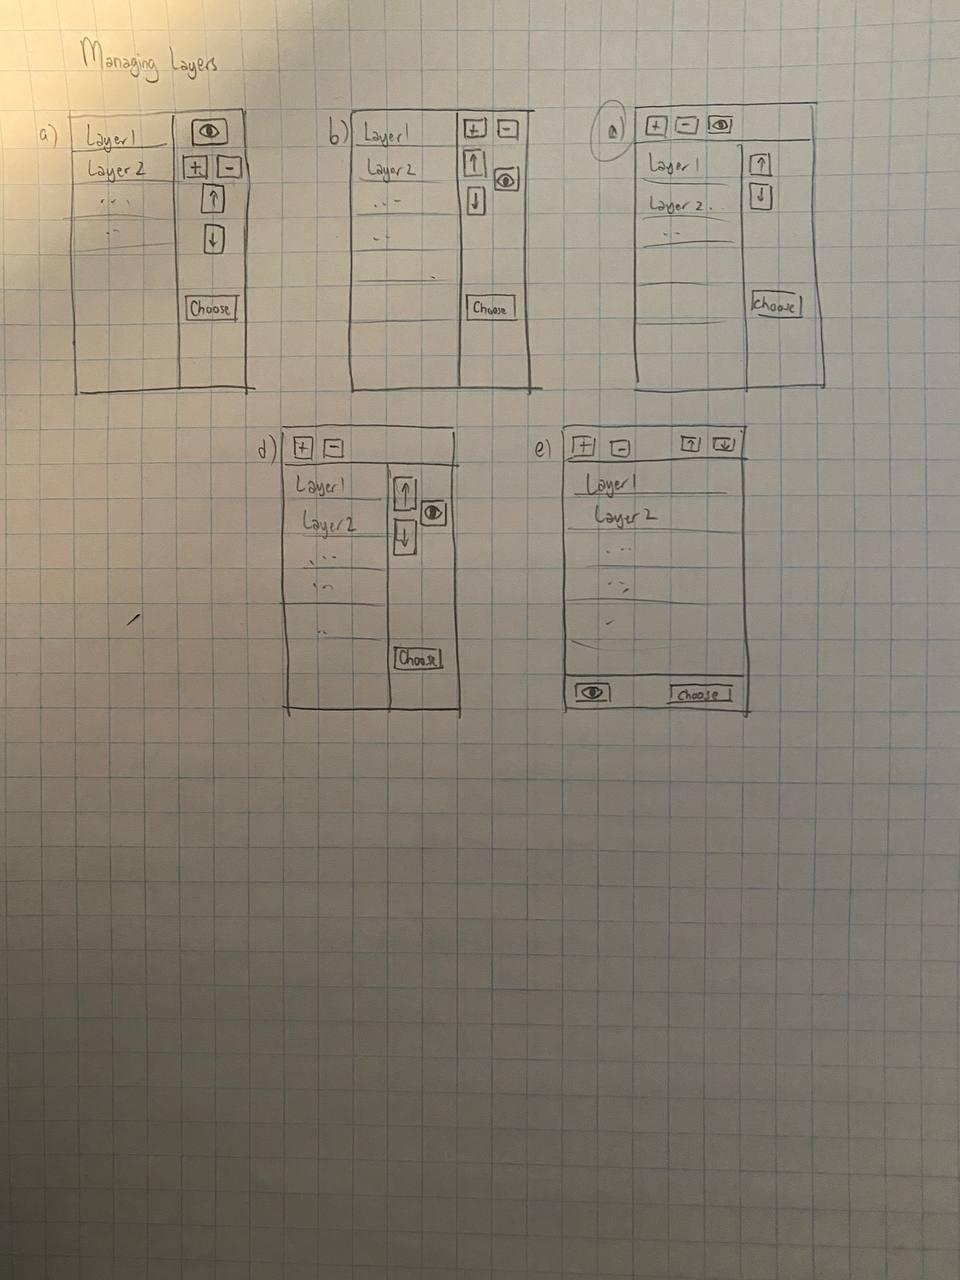 Managing Layers
a) Layer1
Layer 2
+ -
↑
↓
Choose
b) Layer1
+ -
Layer2
↑
↓
Choose
+ -
Layer 1
↑
Layer 2
↓
Choose
d) + -
Layer1
↑
Layer2
↓
Choose
e) + - ↑ ↓
Layer1
Layer 2
Choose